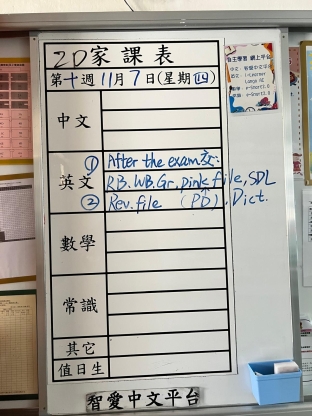 2D家課表
第十週11月7日(星期四)
中文
英文
① After the exam交:
RB.WB.Gr.pink file,SDL
② Rev.file (PD).Dict.
數學
常識
其它
值日生
智愛中文平台
自主學習 網上平台